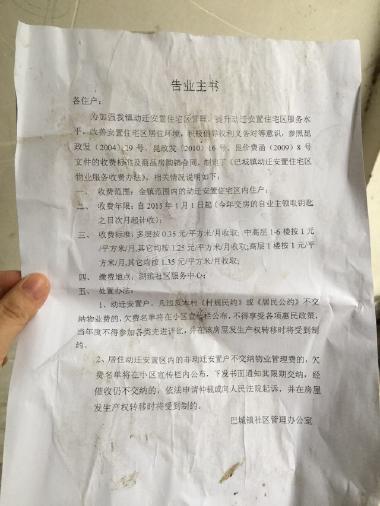 告业主书
各住户：
为加强我镇动迁安置住宅区管理，提升动迁安置住宅区服务水
平，改善安置住宅区居住环境，积极倡导权利义务对等意识，参照昆
政发（2004）29 号、昆政发（2010）16 号、昆价费函（2009）8 号
文件的收费标准及商品房购销合同，制定了《巴城镇动迁安置住宅区
物业服务收费办法》，相关情况说明如下：
一、 收费范围：全镇范围内的动迁安置住宅区内住户；
二、 收费年限：自 2015 年 1 月 1 日起（今年交房的自业主领取钥匙
之日次月起计收）；
三、 收费标准：多层按 0.35 元/平方米/月收取；中高层 1-6 楼按 1 元
/平方米/月，其它均按 1.25 元/平方米/月收取；高层 1 楼按 1 元/平
方米/月，其它均按 1.35 元/平方米/月收取；
四、 缴费地点：湖滨社区服务中心；
五、 处置办法：
1、动迁安置户，凡违反本村《村规民约》或《居民公约》不交
纳物业费的，欠费名单将在小区宣传栏公布，不得享受各项惠民政策，
当年度不得参加各类先进评比，并在该房屋发生产权转移时将受到制
约。
2、居住动迁安置区内的非动迁安置户不交纳物业管理费的，欠
费名单将在小区宣传栏内公布，下发书面通知其限期交纳，经
催收仍不交纳的，依法申请仲裁或向人民法院起诉，并在房屋
发生产权转移时将受到制约。
巴城镇社区管理办公室